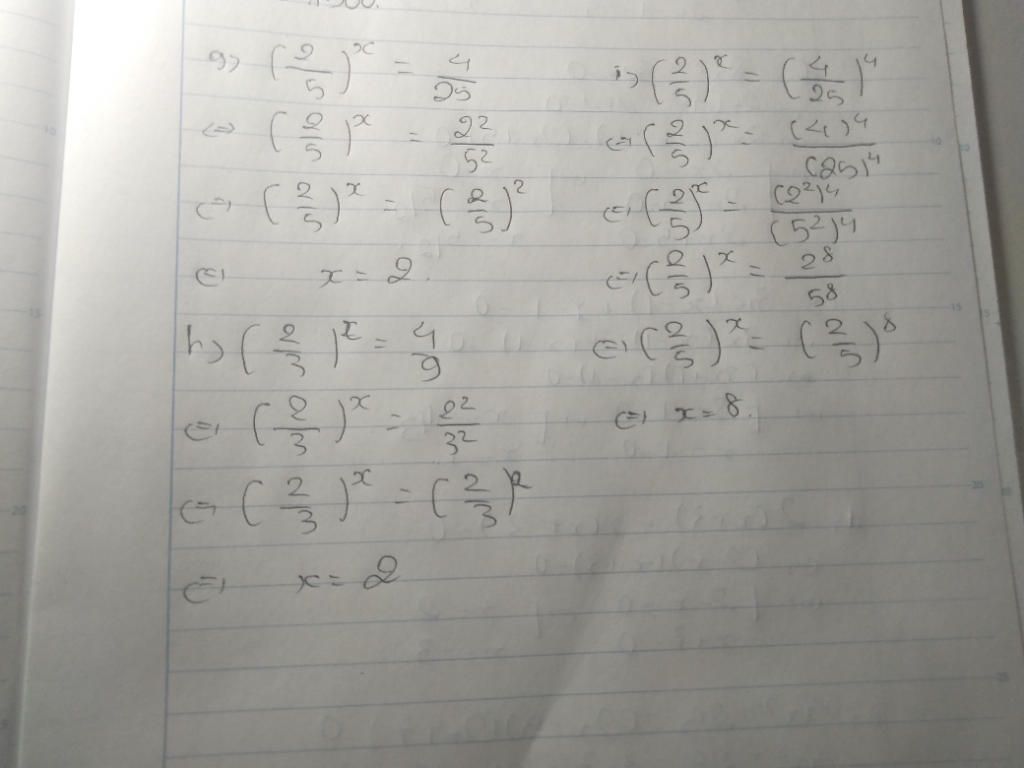 g) (2/5)^x = 4/25
⇔ (2/5)^x = 2²/5²
⇔ (2/5)^x = (2/5)²
⇔ x = 2.
h) (2/3)^x = 4/9
⇔ (2/3)^x = 2²/3²
⇔ (2/3)^x = (2/3)²
⇔ x = 2
i) (2/5)^x = (4/25)⁴
⇔ (2/5)^x = (4)⁴/(25)⁴
⇔ (2/5)^x = (2²)⁴/(5²)⁴
⇔ (2/5)^x = 2⁸/5⁸
⇔ (2/5)^x = (2/5)⁸
⇔ x = 8.